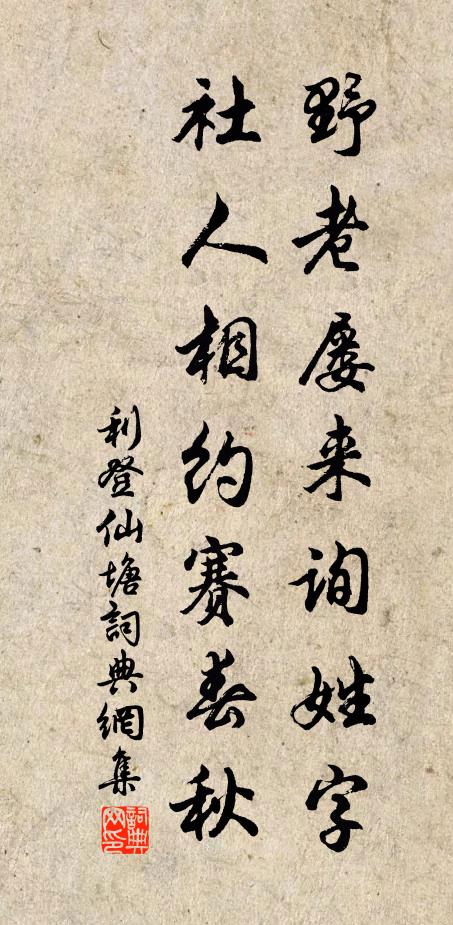 野老屡来询姓字
社人相约赛春秋
利登仙塘詞典網集
詞典网印